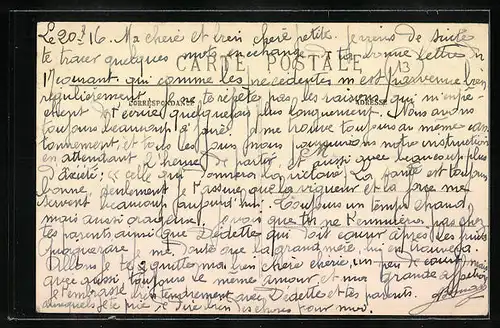 Le 20-3 16. Ma chère et bien chère petite. Je viens de suite
te tracer quelques mots en échange de ta bonne lettre du
CARTE POSTALE
13 courant qui comme les précédentes m'est parvenue bien
régulièrement. Je ne te répète pas les raisons qui m'empê-
CORRESPONDANCE ADRESSE
chent d'écrire quelquefois plus longuement. Nous avons
toujours beaucoup à faire. Je me trouve toujours au même can-
tonnement et tous les jours nous notre instruction
en attendant l'heure de partir et aussi avec beaucoup plus
d'anxiété : celle qui donnera la victoire. La santé est toujours
bonne, seulement je t'assure que la vigueur et la
servent beaucoup aujourd'hui. Toujours un temps chaud
mais aussi orageux. Je vois que tu ne t'ennuieras pas chez
tes parents ainsi que Dédette qui doit courir après les
Je me doute que la grand'mère lui en
Allons je te quitte ma bien chère chérie, un peu de courage mais
avec aussi toujours le même amour et une grande affection
Je t'embrasse bien tendrement avec Dédette et tes parents
auxquels je te prie de dire bien des choses pour moi.